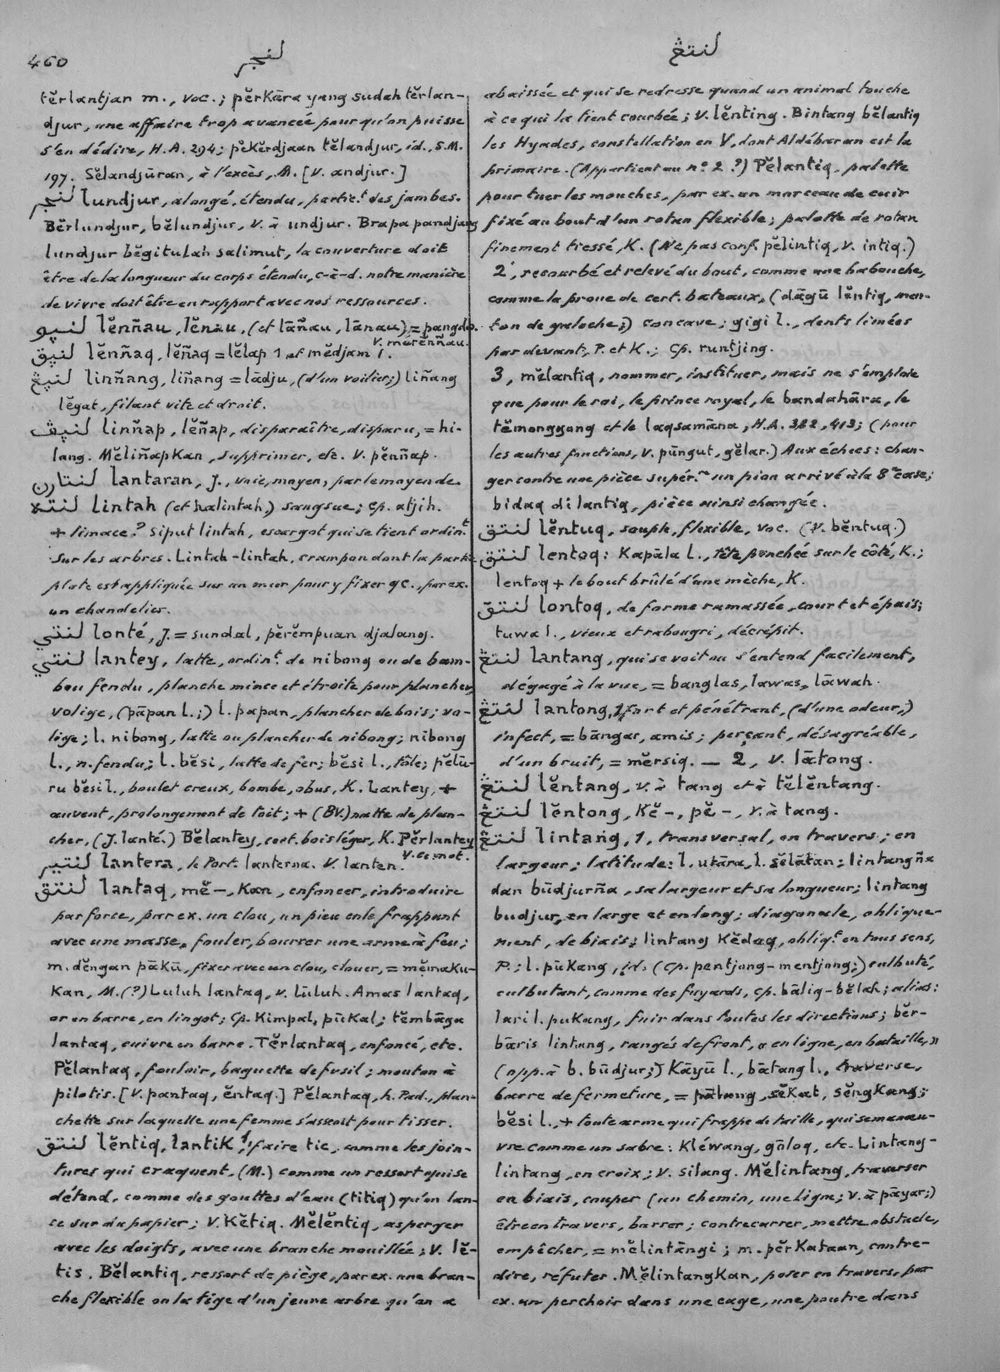 460
لنجر
لنتڠ
tĕrlantjan m., voc.; pĕrkāra yang sudah tĕrlan-
djur, une affaire trop avancée pour qu'on puisse
s'en dédire, H.A. 294; pĕkĕrdjaan tĕlandjur, id., S.M.
197. Sĕlandjūran, à l'excès, M. [V. andjur.]
لنجر lundjur, alongé, étendu, partic.t des jambes.
Bĕrlundjur, bĕlundjur, v. à undjur. Brapa pandjang
lundjur bĕgitulah salimut, la couverture doit
être de la longueur du corps étendu, c-à-d. notre manière
de vivre doit être en rapport avec nos ressources.
lĕnñau, lĕnau, (et lāñau, lānau) = pangdo.
V. mĕrĕnñau.
lĕnñaq, lĕñaq = lĕlap 1 et mĕdjam 1.
linñang, liñang = lādju, (d'un voilier;) liñang
lĕgat, filant vite et droit.
linñap, lĕñap, disparaître, disparu, = hi-
lang. Mĕliñapkan, supprimer, etc. V. pĕnñap.
لنتارن lantaran, J., voie, moyen, par le moyen de.
لنته lintah (et halintah) sangsue; cp. atjih.
+ limace? Siput lintah, escargot qui se tient ordin.t
sur les arbres. Lintah-lintah, crampon dont la partie
plate est appliquée sur un mur pour y fixer qc., par ex.
un chandelier.
لنتي lonté, J. = sundal, pĕrĕmpuan djalang.
لنتي lantey, latte, ordin.t de nibong ou de bam-
bou fendu, planche mince et étroite pour plancher,
volige, (pāpan l.;) l. papan, plancher de bois; vo-
lige; l. nibong, latte ou plancher de nibong; nibong
l., n. fendu; l. bĕsi, latte de fer; bĕsi l., tôle; pĕlū-
ru bĕsi l., boulet creux, bombe, obus, K. Lantey, +
auvent, prolongement de toit; + (BK) natte de plan-
cher, (J. lanté.) Bĕlantey, cert. bois léger, K. Pĕrlantey
V. ce mot.
لنتير lantera, le Port. lanterna. V. lanten.
لنتق lantaq, mĕ-, kan, enfoncer, introduire
par force, par ex. un clou, un pieu en le frappant
avec une masse, fouler, bourrer une arme à feu;
m. dĕngan pākū, fixer avec un clou, clouer, = mĕmaku-
kan, M. (?) Luluh lantaq, v. lūluh. Amas lantaq,
or en barre, en lingot; cp. kimpal, pūkal; tĕmbāga
lantaq, cuivre en barre. Tĕrlantaq, enfoncé, etc.
Pĕlantaq, fouloir, baguette de fusil; mouton à
pilotis. [V. pantaq, ĕntaq.] Pĕlantaq, h. Pad., plan-
chette sur laquelle une femme s'assoit pour tisser.
لنتق lĕntiq, lantik, 1, faire tic, comme les join-
tures qui craquent, (M.) comme un ressort qui se
détend, comme des gouttes d'eau (titiq) qu'on lan-
ce sur du papier; V. kĕtiq. Mĕlĕntiq, asperger
avec les doigts, avec une branche mouillée; V. lĕ-
tis. Bĕlantiq, ressort de piège, par ex. une bran-
che flexible ou la tige d'un jeune arbre qu'on a
abaissée et qui se redresse quand un animal touche
à ce qui la tient courbée; V. lĕnting. Bintang bĕlantiq
les Hyades, constellation en V, dont Aldébaran est la
primaire. (Appartient au n° 2?) Pĕlantiq, palette
pour tuer les mouches, par ex. un morceau de cuir
fixé au bout d'un rotan flexible; palette de rotan
finement tressé, K. (Ne pas conf. pĕlintiq, v. intiq.)
2, recourbé et relevé du bout, comme une babouche,
comme la proue de cert. bateaux, (dāgū lĕntiq, men-
ton de galoche;) concave; gigi l., dents limées
par devant, P. et K.; cp. runtjing.
3, mĕlantiq, nommer, instituer, mais ne s'emploie
que pour le roi, le prince royal, le bandahāra, le
tĕmonggang et le laqsamāna; H.A. 382, 413; (pour
les autres fonctions, V. pūngut, gĕlar.) Aux échecs: chan-
ger contre une pièce supér.re un pion arrivé à la 8e case;
bidaq di lantiq, pièce ainsi changée.
لنتق lĕntuq, souple, flexible, voc. (V. bĕntuq.)
لنتق lentoq: kapāla l., tête penchée sur le côté, K.;
lentoq + le bout brûlé d'une mèche, K.
لنتق lontoq, de forme ramassée, court et épais;
tuwa l., vieux et rabougri, décrépit.
لنتڠ lantang, qui se voit ou s'entend facilement,
dégagé à la vue, = banglas, lawas, lāwah.
لنتڠ lantong, 1, fort et pénétrant, (d'une odeur,)
infect, = bāngar, amis; perçant, désagréable,
d'un bruit, = mĕrsiq. — 2, v. lātong.
لنتڠ lĕntang, v. à tang et à tĕlĕntang.
لنتڠ lĕntong, kĕ-, pĕ-, v. à tang.
لنتڠ lintang, 1, transversal, en travers; en
largeur; latitude: l. utāra, l. sĕlātan; lintangña
dan būdjurña, sa largeur et sa longueur; lintang
budjur, en large et en long; diagonale, oblique-
ment, de biais; lintang kĕdaq, obliq.t en tous sens,
P.; l. pūkang, id. (cp. pentjong-mentjong;) culbuté,
culbutant, comme des fuyards, cp. bāliq-bĕlah; alias:
lari l. pukang, fuir dans toutes les directions; bĕr-
bāris lintang, rangés de front, « en ligne, en bataille, »
(opp. à b. būdjur;) kāyū l., bātang l., traverse,
barre de fermeture, = pālang, sĕkat, sĕngkang;
bĕsi l., + toute arme qui frappe de taille, qui se manœu-
vre comme un sabre: klĕwang, gōloq, etc. Lintang-
lintang, en croix; v. silang. Mĕlintang, traverser
en biais, couper (un chemin, une ligne; v. à pāyar;)
être en travers, barrer; contrecarrer, mettre obstacle,
empêcher, = mĕlintāngi; m. pĕrkataan, contre-
dire, réfuter. Mĕlintangkan, poser en travers, par
ex. un perchoir dans une cage, une poutre dans